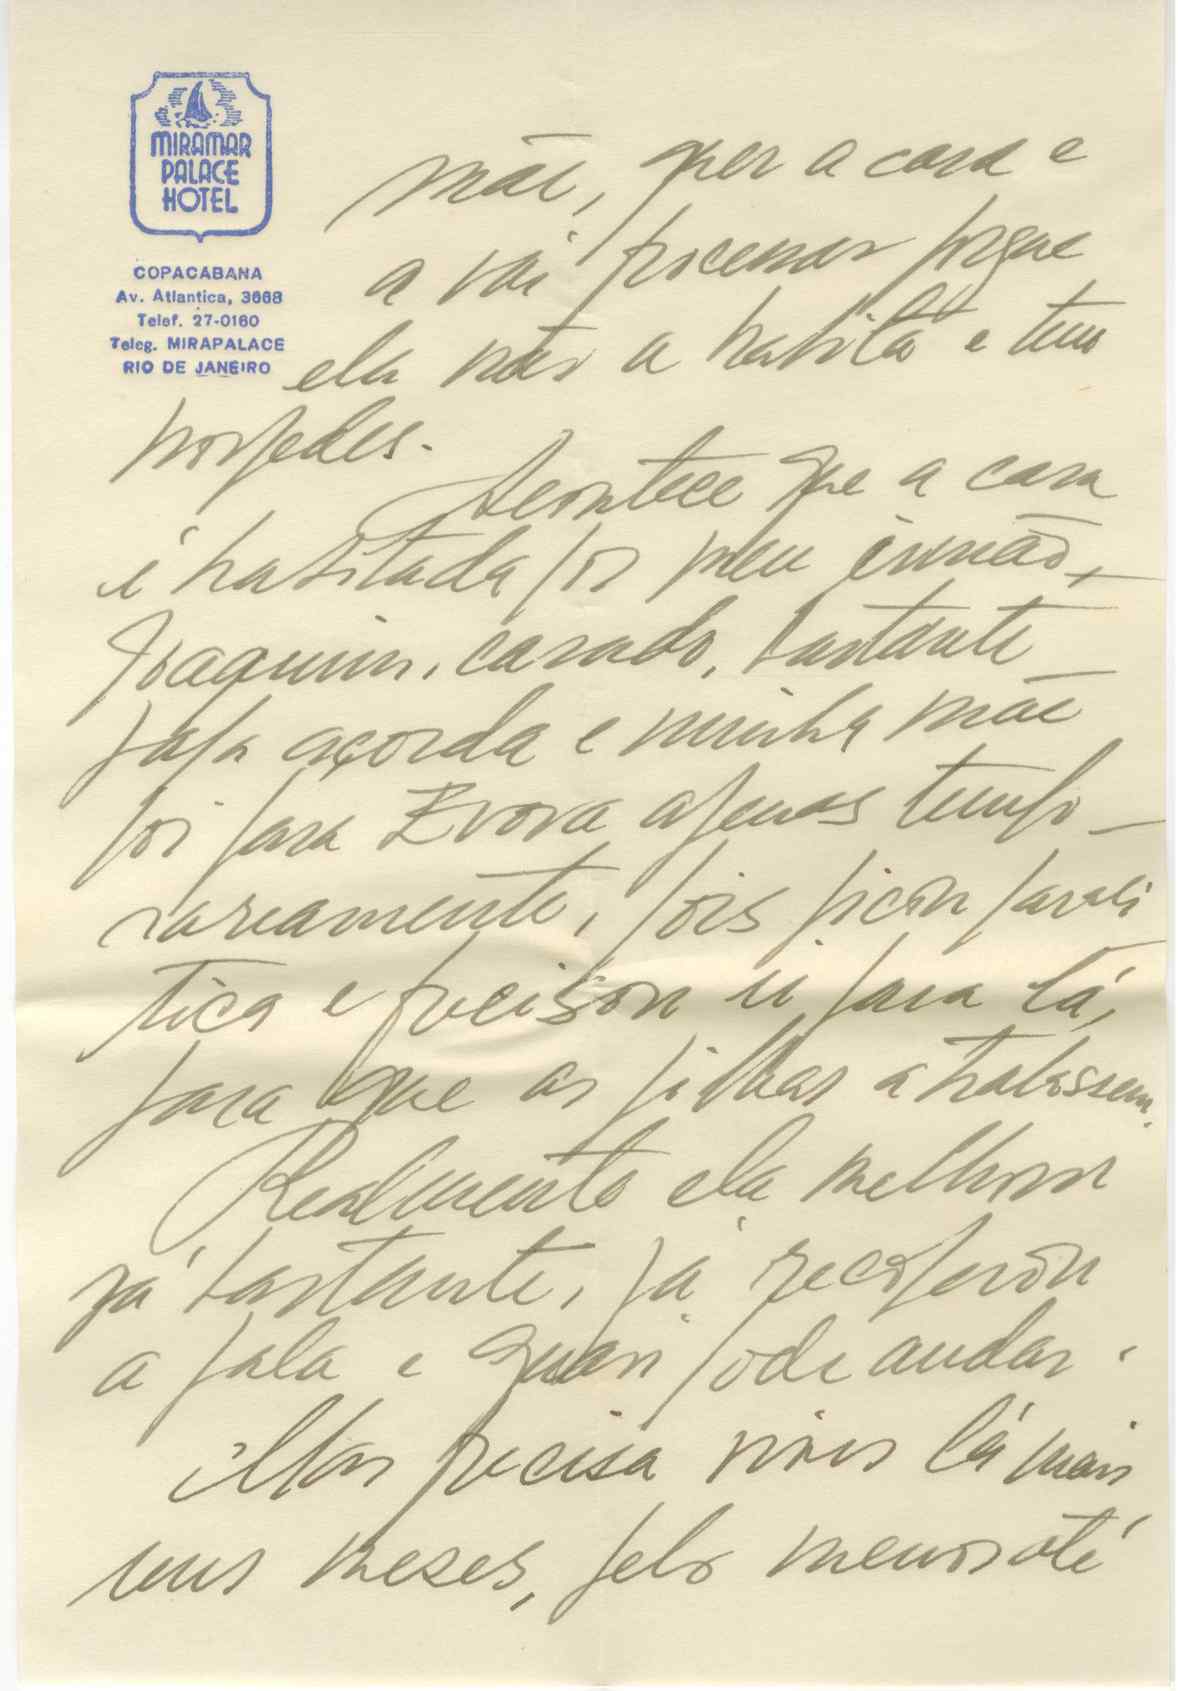 MIRAMAR
PALACE
HOTEL
COPACABANA
Av. Atlantica, 3668
Telef. 27-0160
Teleg. MIRAPALACE
RIO DE JANEIRO
mãe, quer a casa e
a vai processar porque
ela não a habita e tem
hospedes.
Acontece que a casa
é habitada por meu irmão,
Joaquim, casado, bastante
papa açorda e minha mãe
foi para Evora apenas tempo-
rareamente, pois ficou parali
tica e precisou ir para lá,
para que as filhas a tratassem.
Realmente ela melhorou
já bastante, já recuperou
a fala e quasi pode andar.
Mas precisa viver lá mais
uns meses, pelo menos até